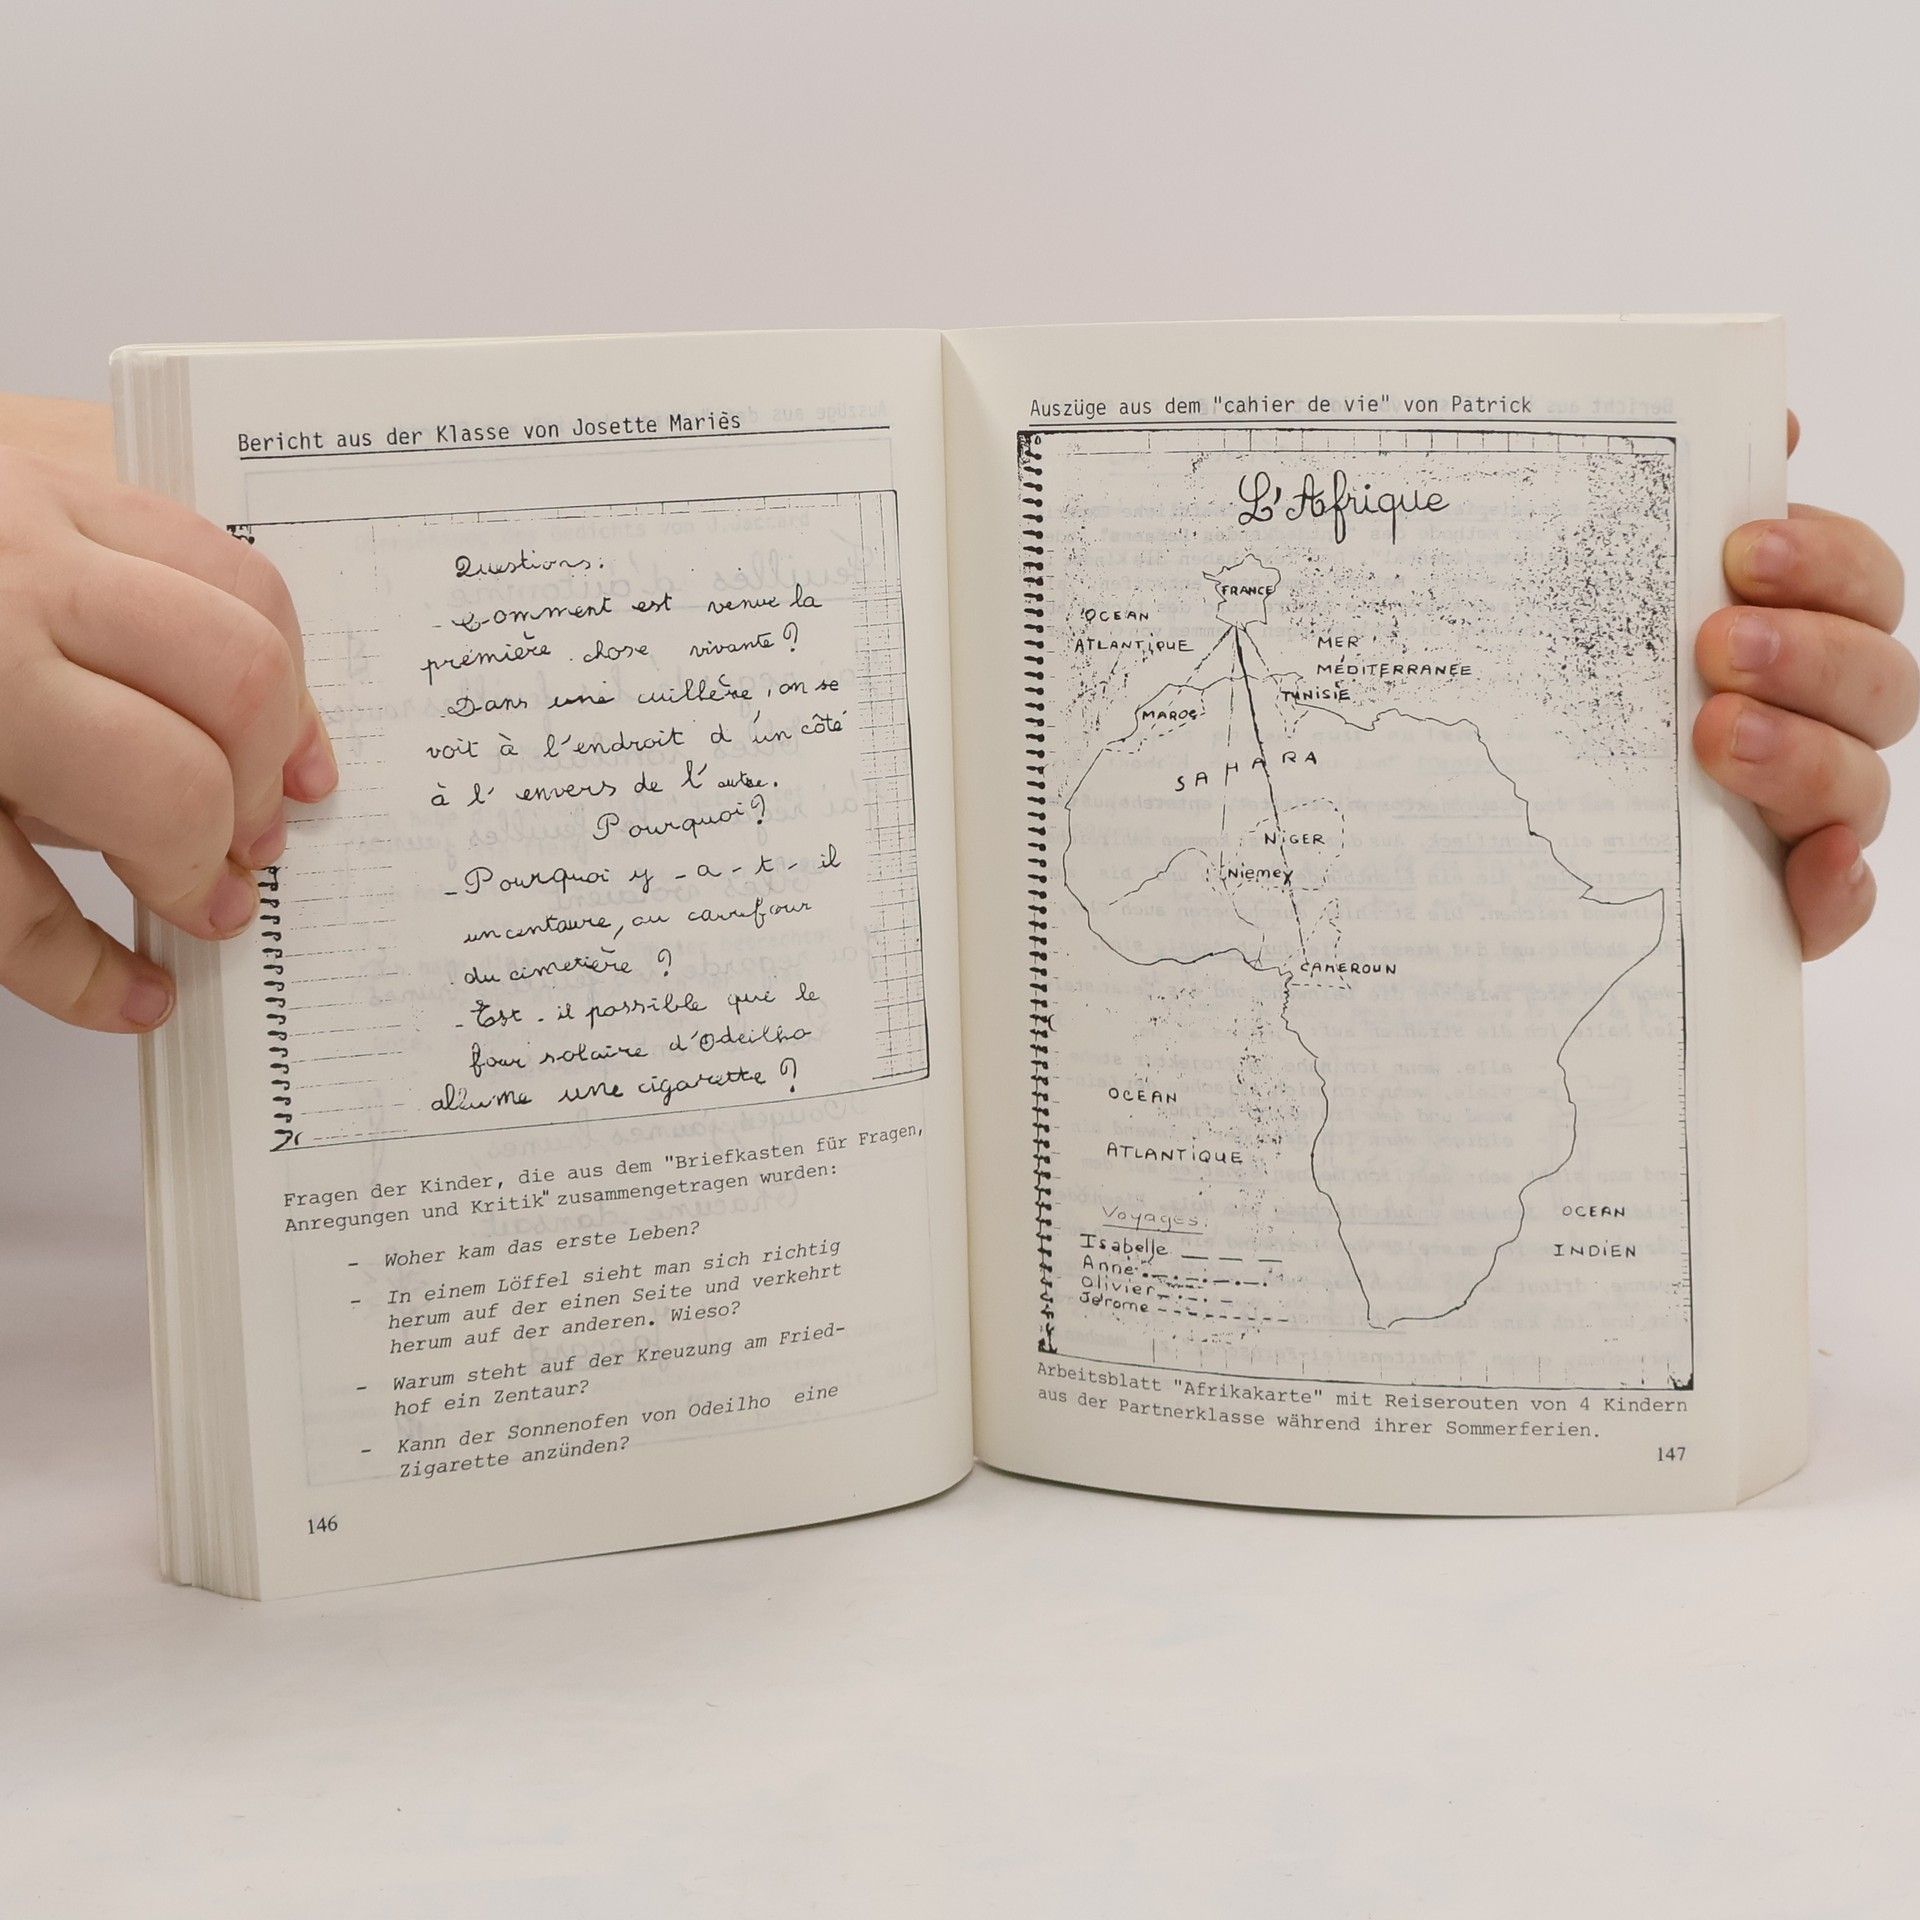 Bericht aus der Klasse von Josette Mariès
Questions:
- Comment est venue la
première chose vivante?
- Dans une cuillère, on se
voit à l'endroit d'un côté
à l'envers de l'autre.
Pourquoi?
- Pourquoi y-a-t-il
un centaure, au carrefour
du cimetière ?
- Est-il possible que le
four solaire d'Odeilho
allume une cigarette ?
Fragen der Kinder, die aus dem "Briefkasten für Fragen,
Anregungen und Kritik" zusammengetragen wurden:
- Woher kam das erste Leben?
- In einem Löffel sieht man sich richtig
herum auf der einen Seite und verkehrt
herum auf der anderen. Wieso?
- Warum steht auf der Kreuzung am Fried-
hof ein Zentaur?
- Kann der Sonnenofen von Odeilho eine
Zigarette anzünden?
146
Auszüge aus dem "cahier de vie" von Patrick
L'Afrique
FRANCE
OCEAN
ATLANTIQUE
MER
MÉDITERRANÉE
TUNISIE
MAROC
SAHARA
NIGER
Niemey
CAMEROUN
OCEAN
ATLANTIQUE
OCEAN
INDIEN
Voyages:
Isabelle
Anne
Olivier
Jérome
Arbeitsblatt "Afrikakarte" mit Reiserouten von 4 Kindern
aus der Partnerklasse während ihrer Sommerferien.
147